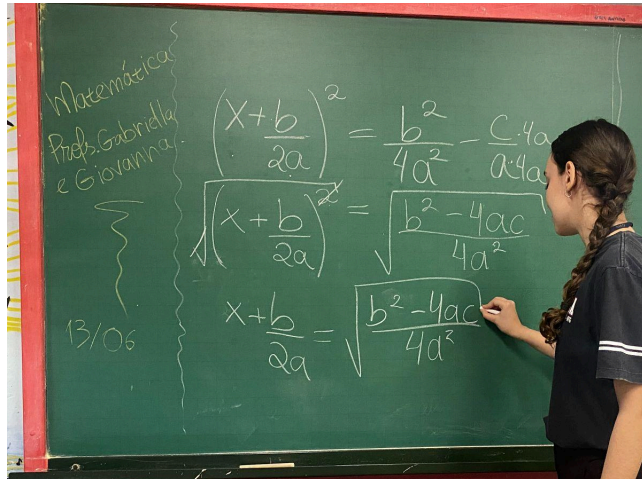 Matemática
Profs. Gabriella
e Giovanna
13/06
(x + b/2a)² = b²/4a² - c·4a/a·4a
√(x + b/2a)² = √(b² - 4ac/4a²)
x + b/2a = √(b² - 4ac/4a²)